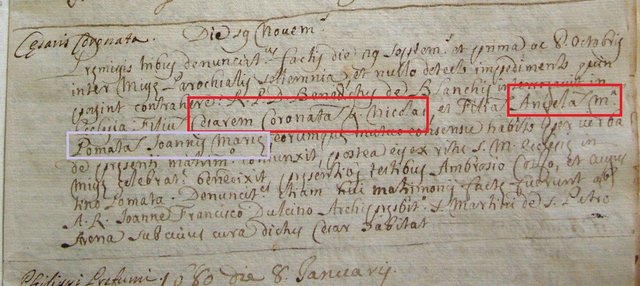 Cesaris Coronata. Die 29 Novem.s
Premissis tribus denunciat.s factis die 29 Septem.s et prima ac 8. Octobris
inter Miss. Parochialis solemnia, et nullo detecto impedimento quin
possint contrahere. R. P. D. Benedictus de Blanchis in
Ecclesia Filiu Cesarem Coronata q. Nicolai et Filia Angela M.a
Pomata Joannis Marie eorumque mutuo consensu habito per verba
de presenti matrim. coniunxit, postea ex ritu S. M. Ecclesie in
Miss. celebrat. benedixit presentib. testibus Ambrosio et
tino Pomata. Denunciat.s etiam huius matrimonij facte fuerunt ab
A. R. Joanne Francisco Dulcino Archipresbit. S. Martini de S. Pietro
Arena sub cuius cura dictus Cesar habitat
Philippi 1680 die 8. Januarij.